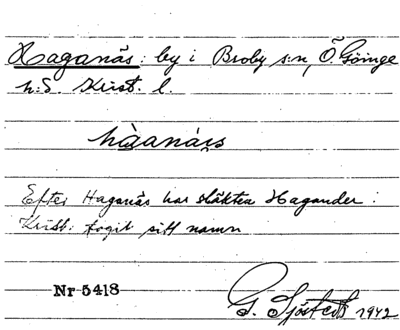 Haganäs: by i Broby s:n, Ö. Göinge
h:d. Krist. l.
hàganäs
Efter Haganäs har släkten Hagander:
Krist: tagit sitt namn
Nr 5418
G. Sjöstedt 1942